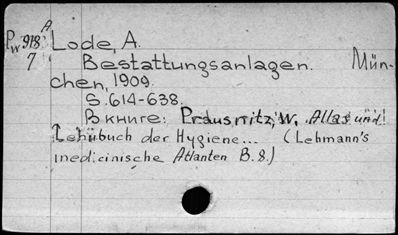 A
Pw 918 Lode, A.
7 Bestattungsanlagen. Mün-
chen, 1909.
S. 614-638.
В книге: Prausnitz, W. Atlas und
Lehrbuch der Hygiene... (Lehmann's
medicinische Atlanten B. 8.)